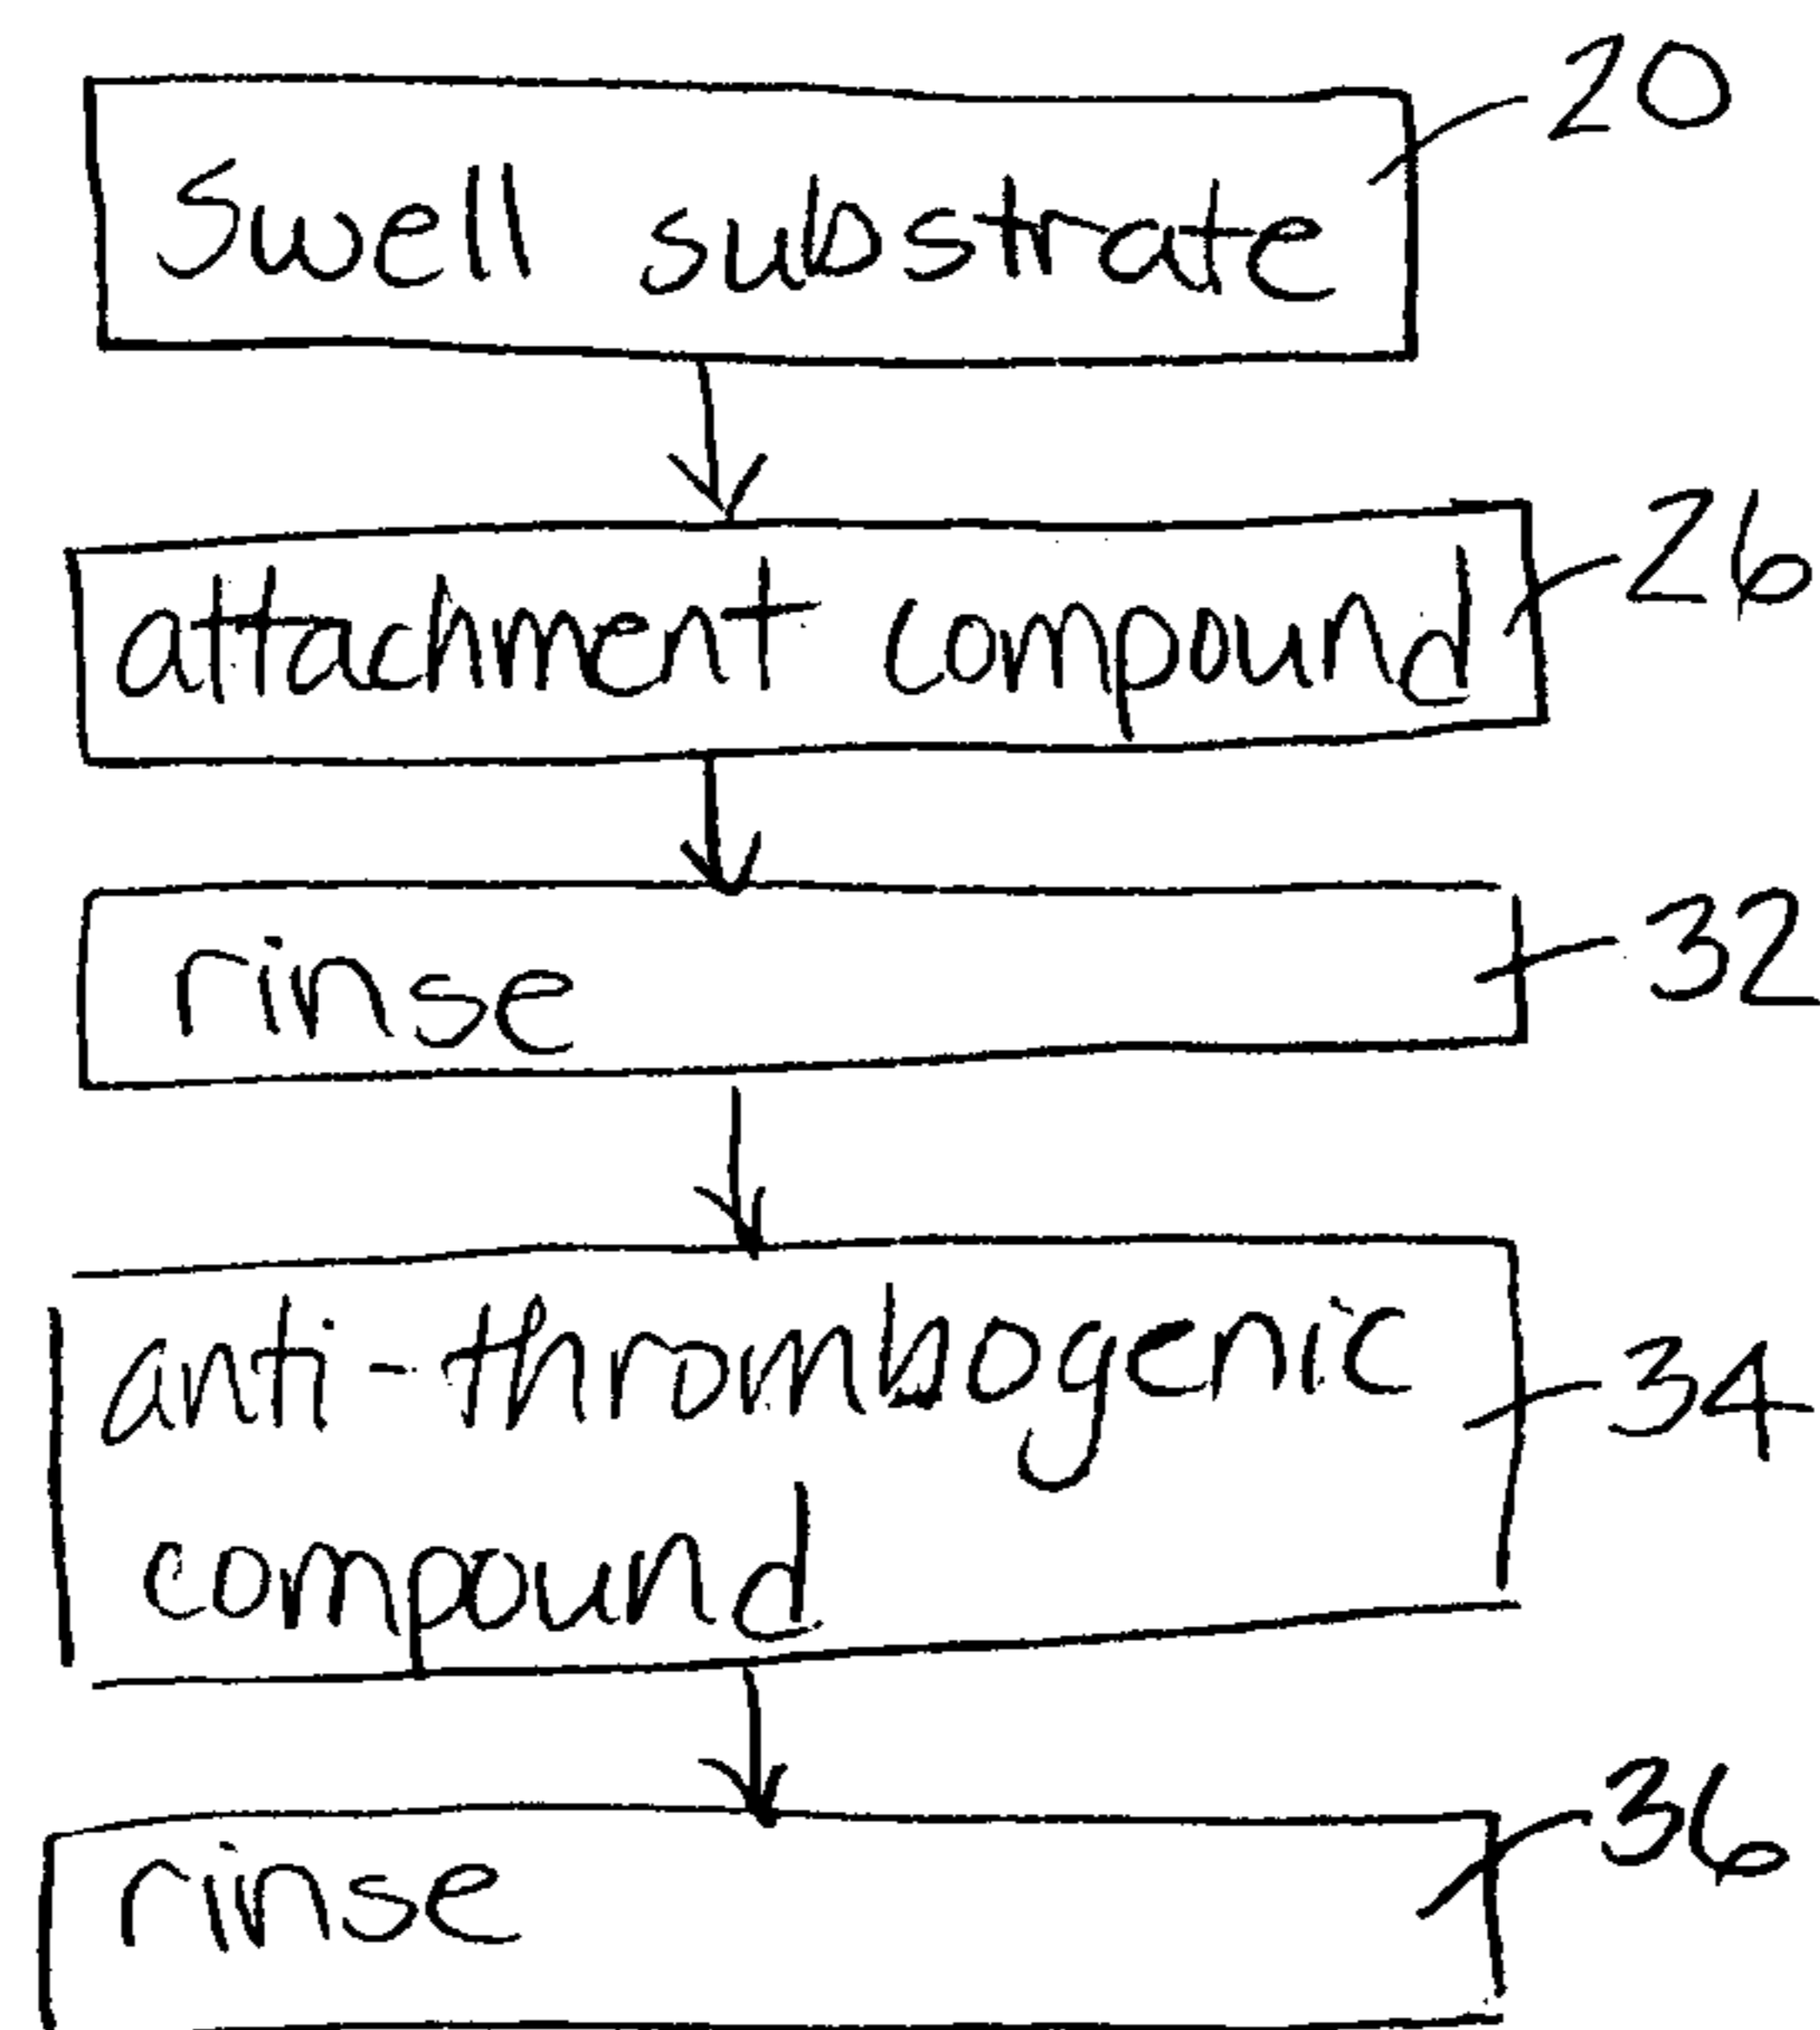 20
Swell substrate
26
attachment compound
32
rinse
anti-thrombogenic
34
compound
36
rinse